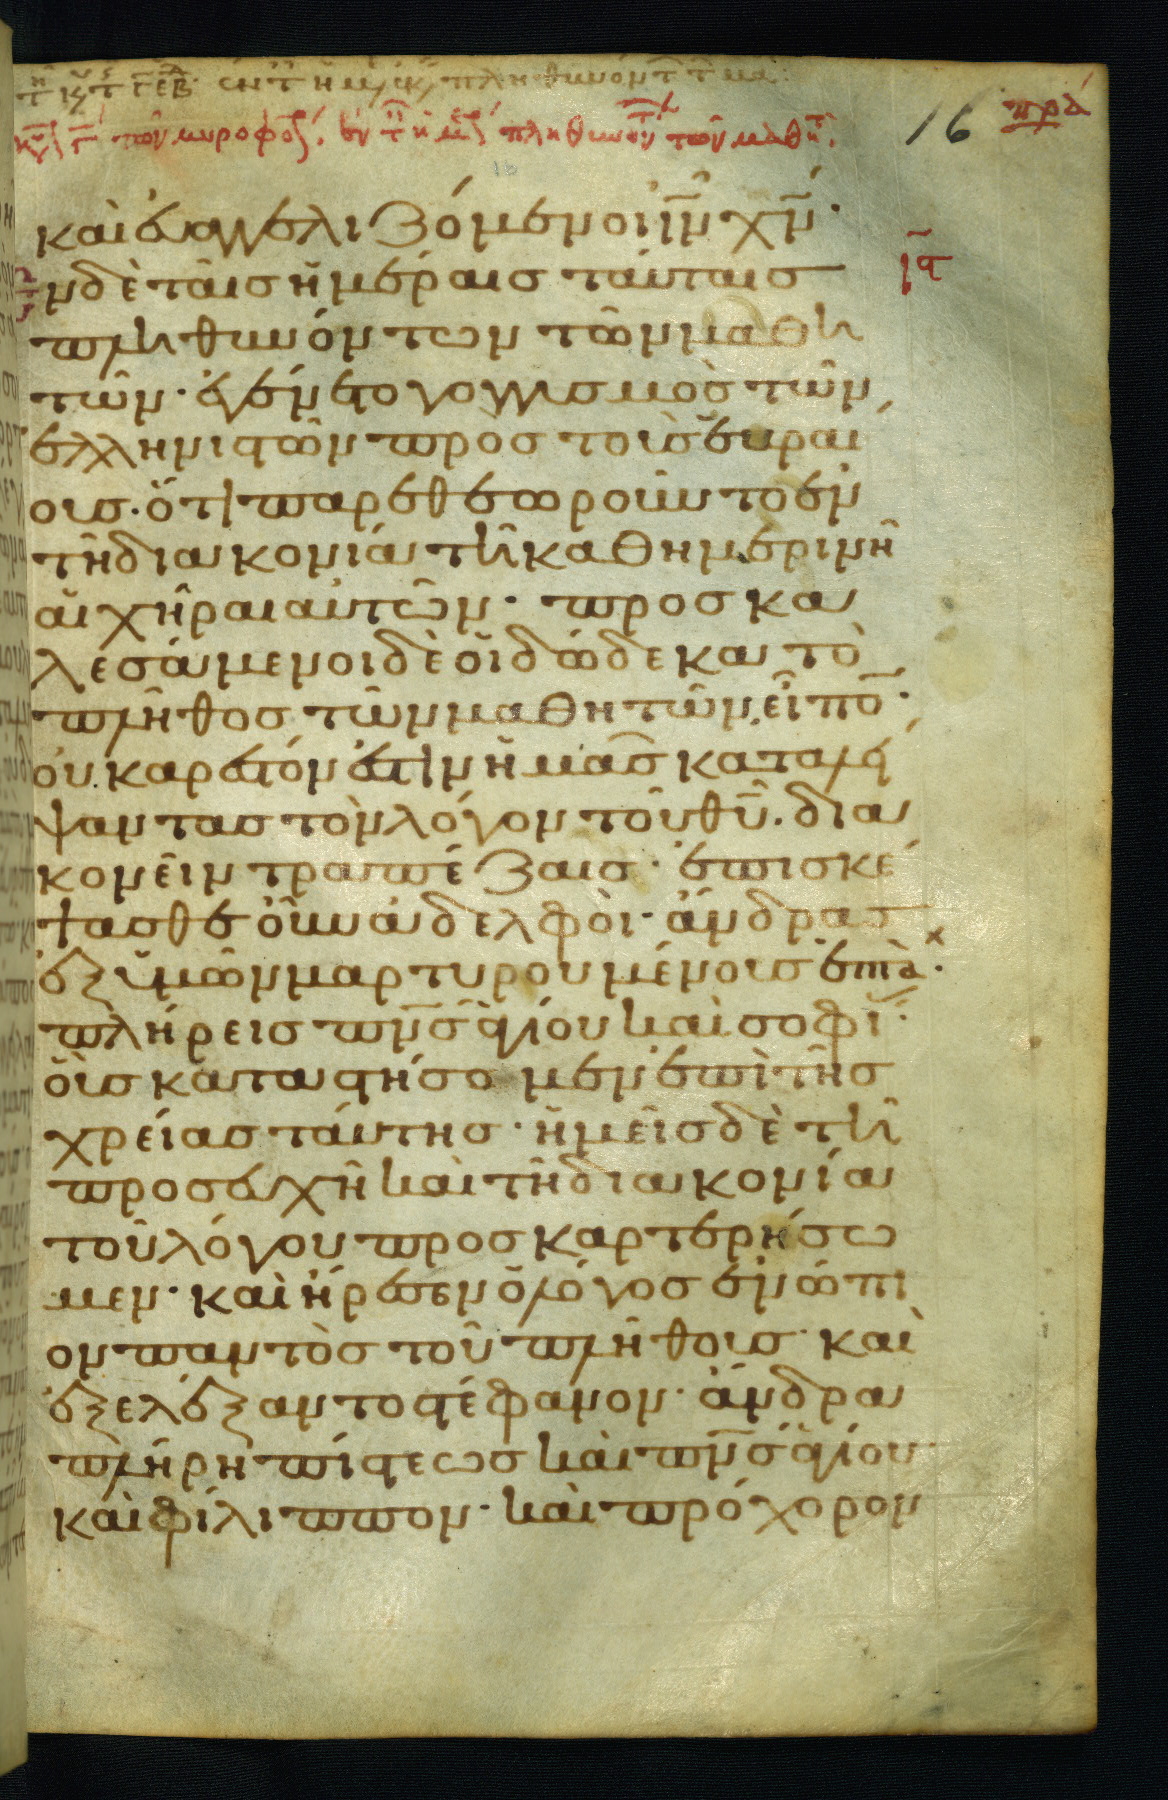 16 πρά
καὶ ἐυαγγελιζόμενοι ἰν̅ χν̅·
νδὲ ταῖσ ἡμέραισ ταύταισ
πληθυνόντων τῶν μαθη
τῶν· ἐγένετο γογγυσμὸσ τῶν
ἑλληνιστῶν πρὸσ τοὺσ ἑβραί
ουσ· ὅτι παρεθεωροῦντο ἐν
τῆ διακονία τῆ καθημερινῆ
αἱ χῆραι αὐτῶν· προσκα
λεσάμενοι δὲ οἱ δώδεκα τὸ
πλῆθοσ τῶν μαθητῶν, εἶπο̅·
οὐκ αρεστόν ἐστιν ἡμᾶσ καταλεί
ψαντασ τὸν λόγον τοῦ θυ̅· δια
κονεῖν τραπέζαισ· ἐπισκέ
ψασθε οὖν ἀδελφοὶ· ἄνδρασ
ἐξ ὑμῶν μαρτυρουμένουσ ἑπτὰ·
πλήρεισ πνσ̅ ἁγίου καὶ σοφί·
οὓσ καταστήσομεν ἐπὶ τῆσ
χρείασ ταύτησ· ἡμεῖσ δὲ τῆ
προσευχῆ καὶ τῆ διακονία
τοῦ λόγου προσκαρτερήσω
μεν· καὶ ἤρεσεν ὁ λόγοσ ἐνώπι
ον παντὸσ τοῦ πλήθουσ· καὶ
ἐξελέξαντο στέφανον· ἄνδρα
πλήρη πίστεωσ καὶ πνσ̅ ἁγίου
καὶ φίλιππον· καὶ πρόχορον